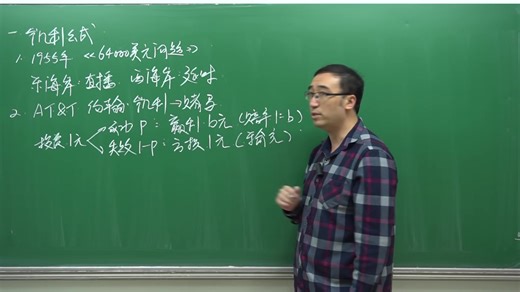 一 凯利公式
1. 1955年 《64000美元问题》
东海岸：直播 西海岸：延时
2. AT&T 约翰·凯利→赌导
投资1元 成功 P：赢利b元（赔率1=b）
失败 1-P：亏损1元（输光）